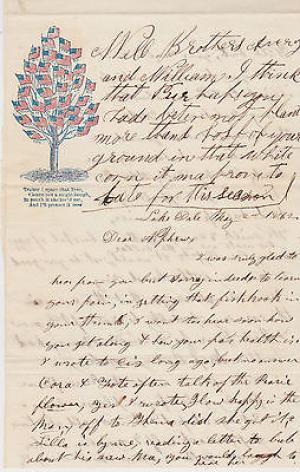 Well Brothers Avery
and William. I think
that Perhaps you
had better not plant
more than most of your
ground in that white
corn it may prove to
late for this season
"Traitor! spare that Tree,
Touch not a single bough,
In youth it shelter'd me,
And I'll protect it now
Lake Dale May 1862
Dear Nephew
I was truly glad to
hear from you but sorry indeed to learn
of your pain, in getting that fishhook in
your thumb, I want to hear soon how
you get along & how your pa's health is
I wrote to long ago, but no answer
Cora & often talk of the
flower, & wrote, how happy in the
off to did she get it
is by me, reading a letter to
about his new Ma, you would laugh to